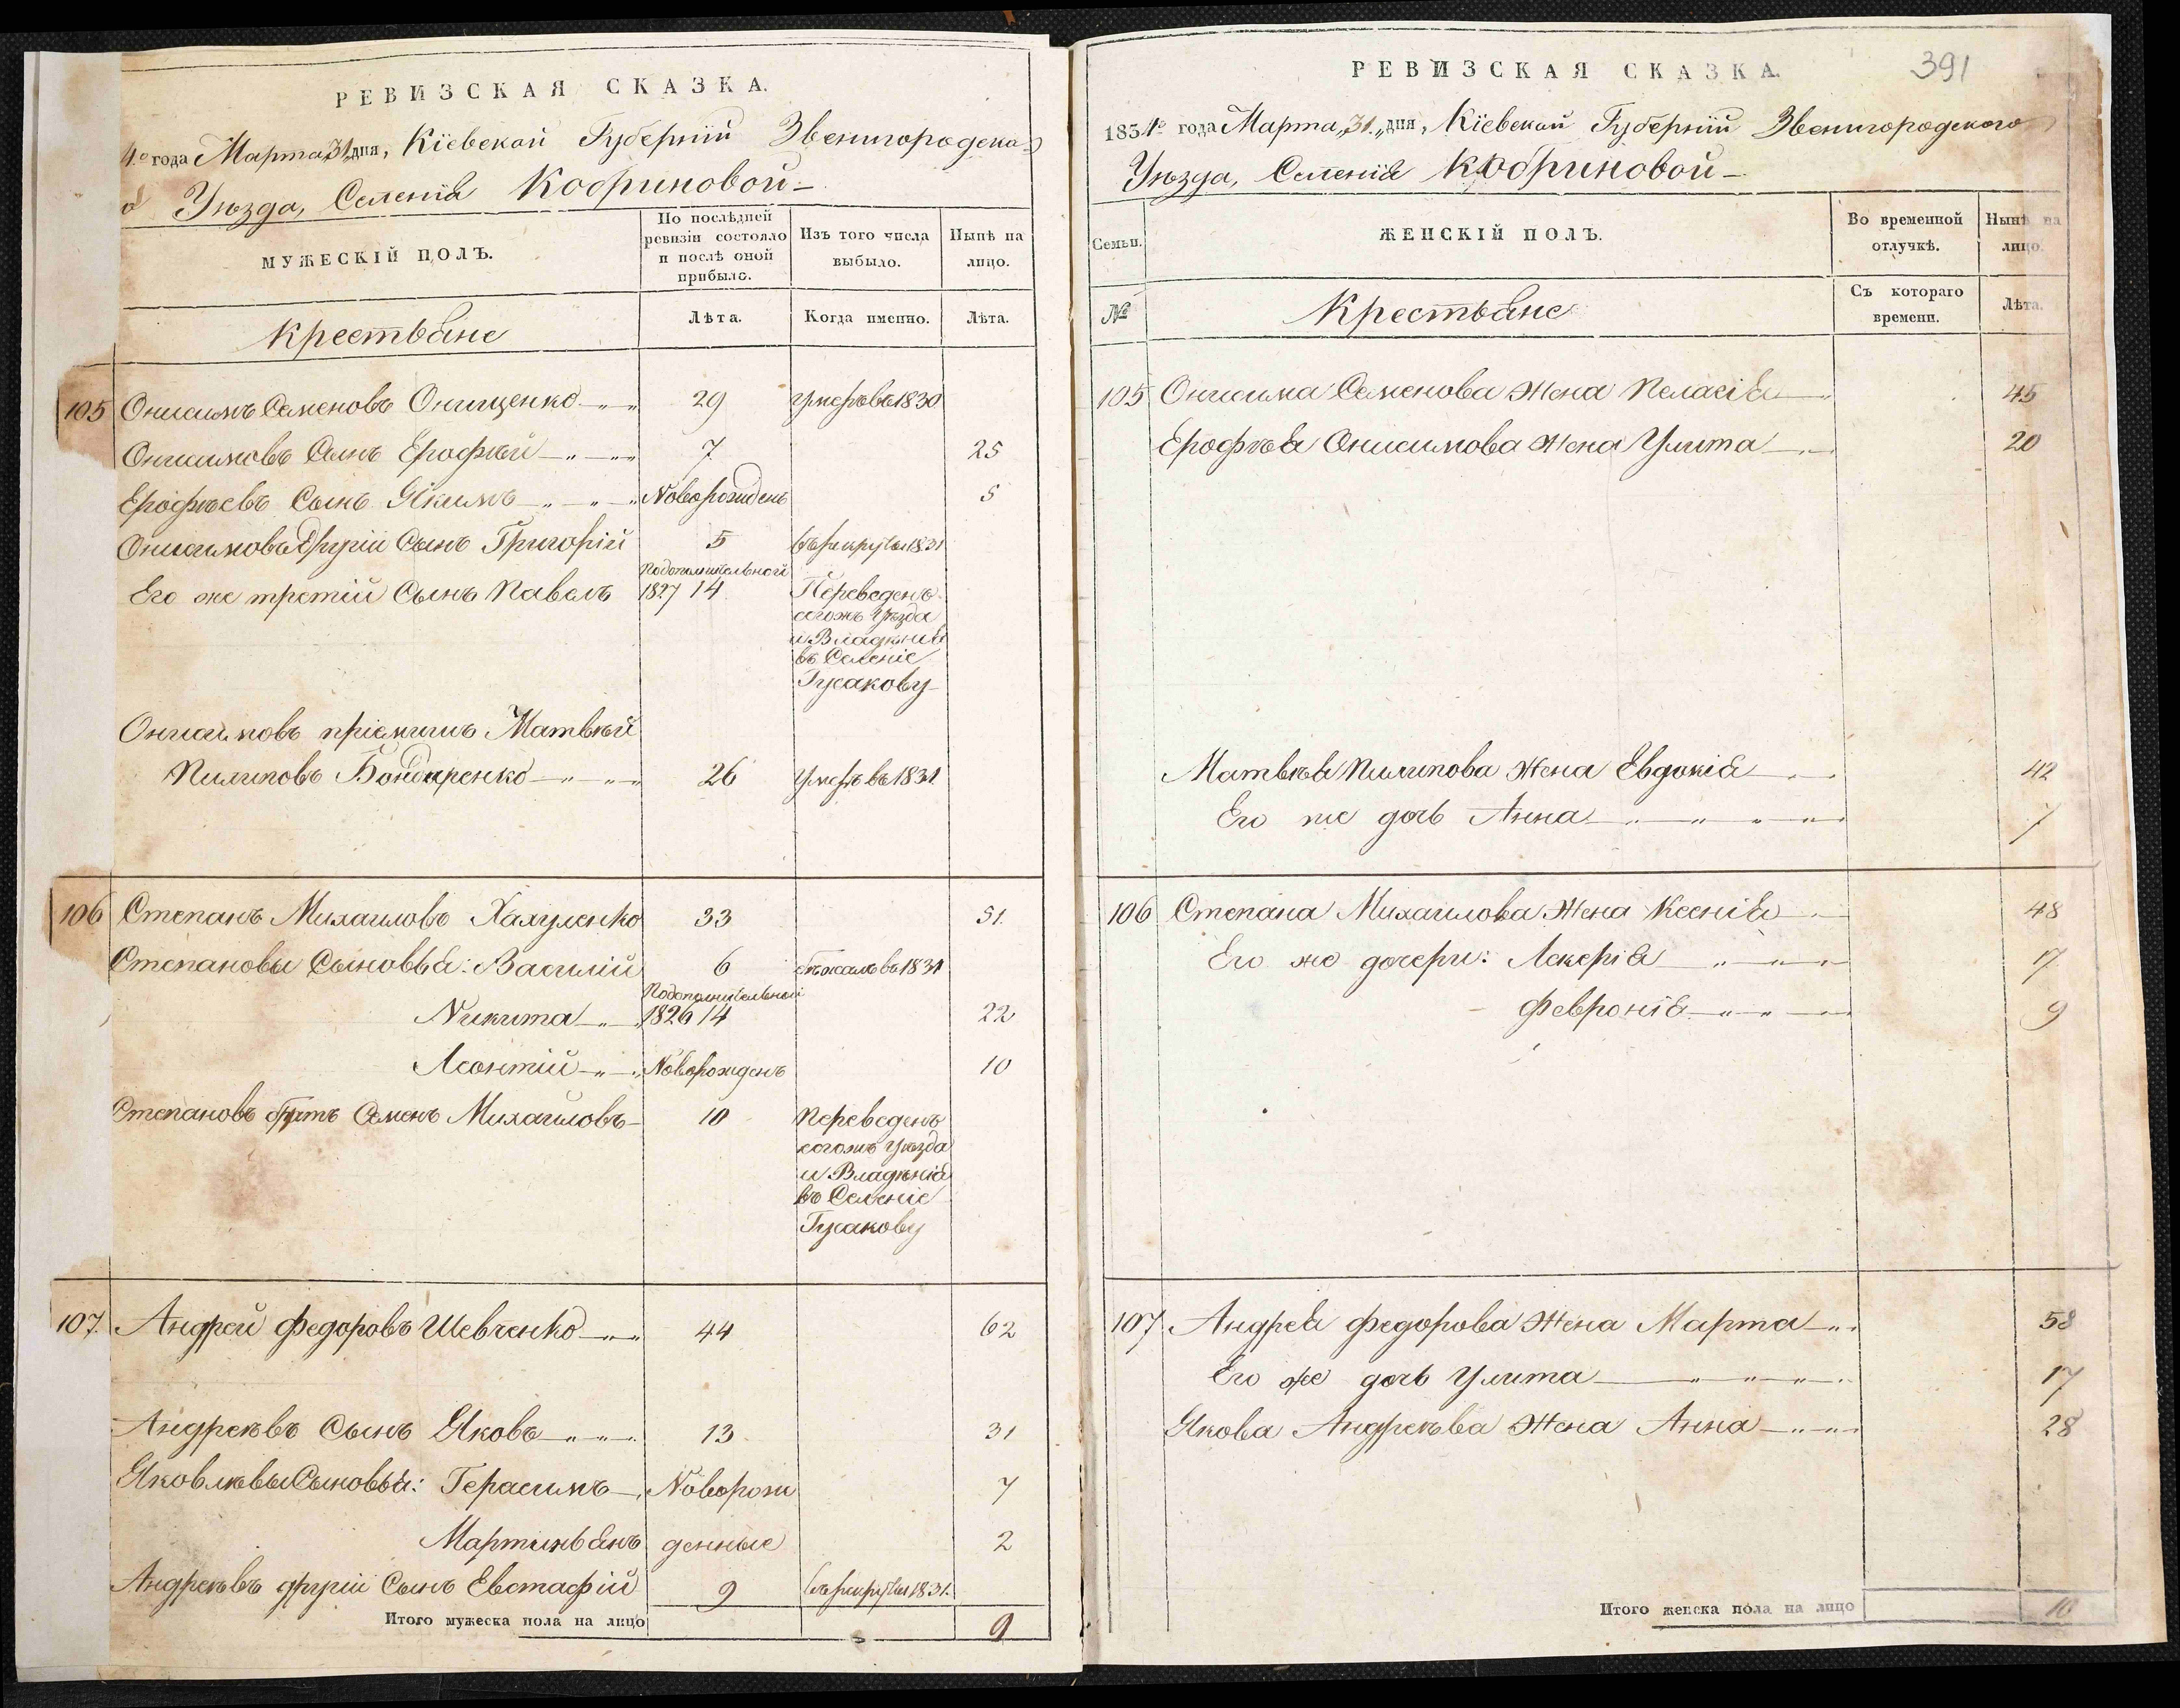 РЕВИЗСКАЯ СКАЗКА.
4го года Марта 31 дня, Кіевской Губерніи Звенигородска
о Уѣзда, Селенія Кобриновой
МУЖЕСКІЙ ПОЛЪ.
По послѣдней ревизіи состояло и послѣ оной прибыло.
Изъ того числа выбыло.
Нынѣ на лицо.
Крестьяне
Лѣта.
Когда именно.
Лѣта.
105 Онисимъ Семеновъ Онищенко 29 умеръ въ 1830
Онисимовъ Сынъ Ерофѣй 7 25
Ерофѣевъ Сынъ Якимъ Новорожденъ 5
Онисимовъ другій Сынъ Григорій 5 въ рекруты 1831
Его же третій Сынъ Павелъ По дополнительной 1827 14 Переведенъ
согожъ Уѣзда
и Владѣнія
въ Селеніе
Гусакову
Онисимовъ пріемышъ Матвѣй
Пилиповъ Бондаренко 26 умеръ въ 1831
106 Степанъ Михайловъ Халуленко 33 51
Степановы Сыновья: Василій 6 бѣжалъ въ 1831
По дополнительной
Никита 1826 14 22
Леонтій Новорожденъ 10
Степановъ братъ Семенъ Михайловъ 10 Переведенъ
согожъ Уѣзда
и Владѣнія
въ Селеніе
Гусакову
107. Андрей Федоровъ Шевченко 44 62
Андреѣвъ Сынъ Яковъ 13 31
Яковлѣвы Сыновья: Герасимъ Новорож 7
Мартиньянъ денные 2
Андреѣвъ другій Сынъ Евстафій 9 въ рекруты 1831.
Итого мужеска пола на лицо 9
РЕВИЗСКАЯ СКАЗКА.
391
1834го года Марта 31 дня, Кіевской Губерніи Звенигородского
Уѣзда, Селенія Кобриновой
Семьи.
ЖЕНСКІЙ ПОЛЪ.
Во временной отлучкѣ.
Нынѣ на лицо.
№
Крестьяне
Съ котораго времени.
Лѣта.
105 Онисима Семенова Жена Пелагія 45
Ерофѣя Онисимова Жена Улита 20
Матвѣя Пилипова Жена Евдокія 42
Его же дочь Анна 7
106 Степана Михайлова Жена Ксенія 48
Его же дочери: Лекерія 17
Февронія 9
107 Андрея Федорова Жена Марта 58
Его же дочь Улита 17
Якова Андреѣва Жена Анна 28
Итого женска пола на лицо 10